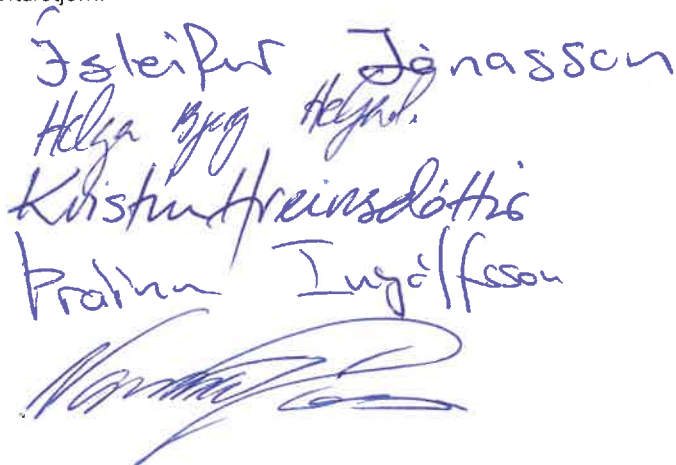 Ísleifur Jónasson
Helga Björg Helgad.
Kristín Hreinsdóttir
Þráinn Ingólfsson